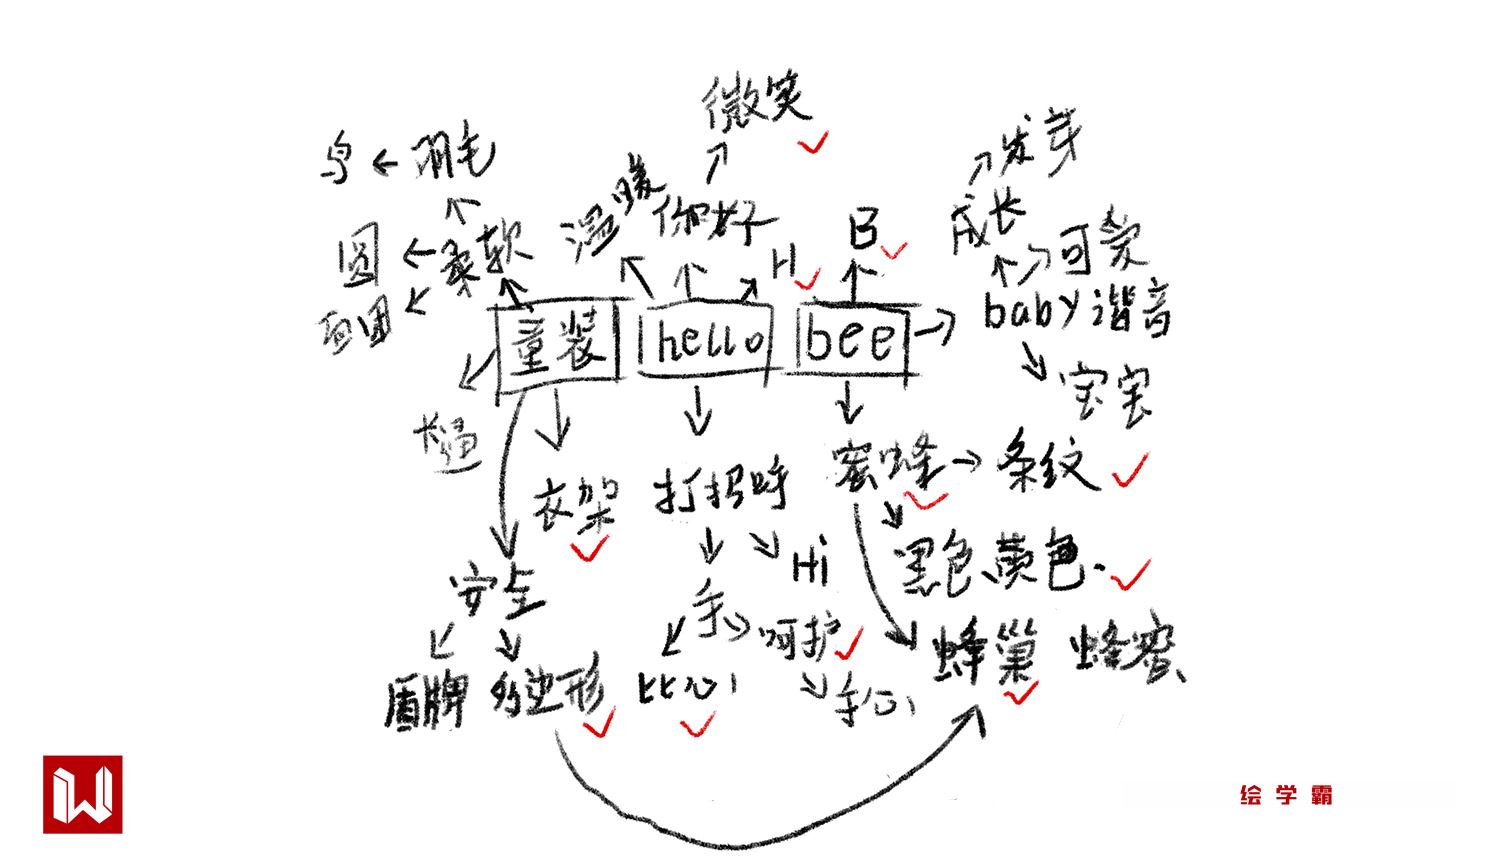 微笑
发芽
鸟
羽毛
温暖
你好
B
成长
圆
柔软
H
可爱
面团
童装
hello
bee
baby 谐音
宝宝
卡通
衣架
打招呼
蜜蜂
条纹
Hi
黑色、黄色.
安全
手
呵护
蜂巢
蜂蜜
盾牌
多边形
比心
手心
W
绘学霸